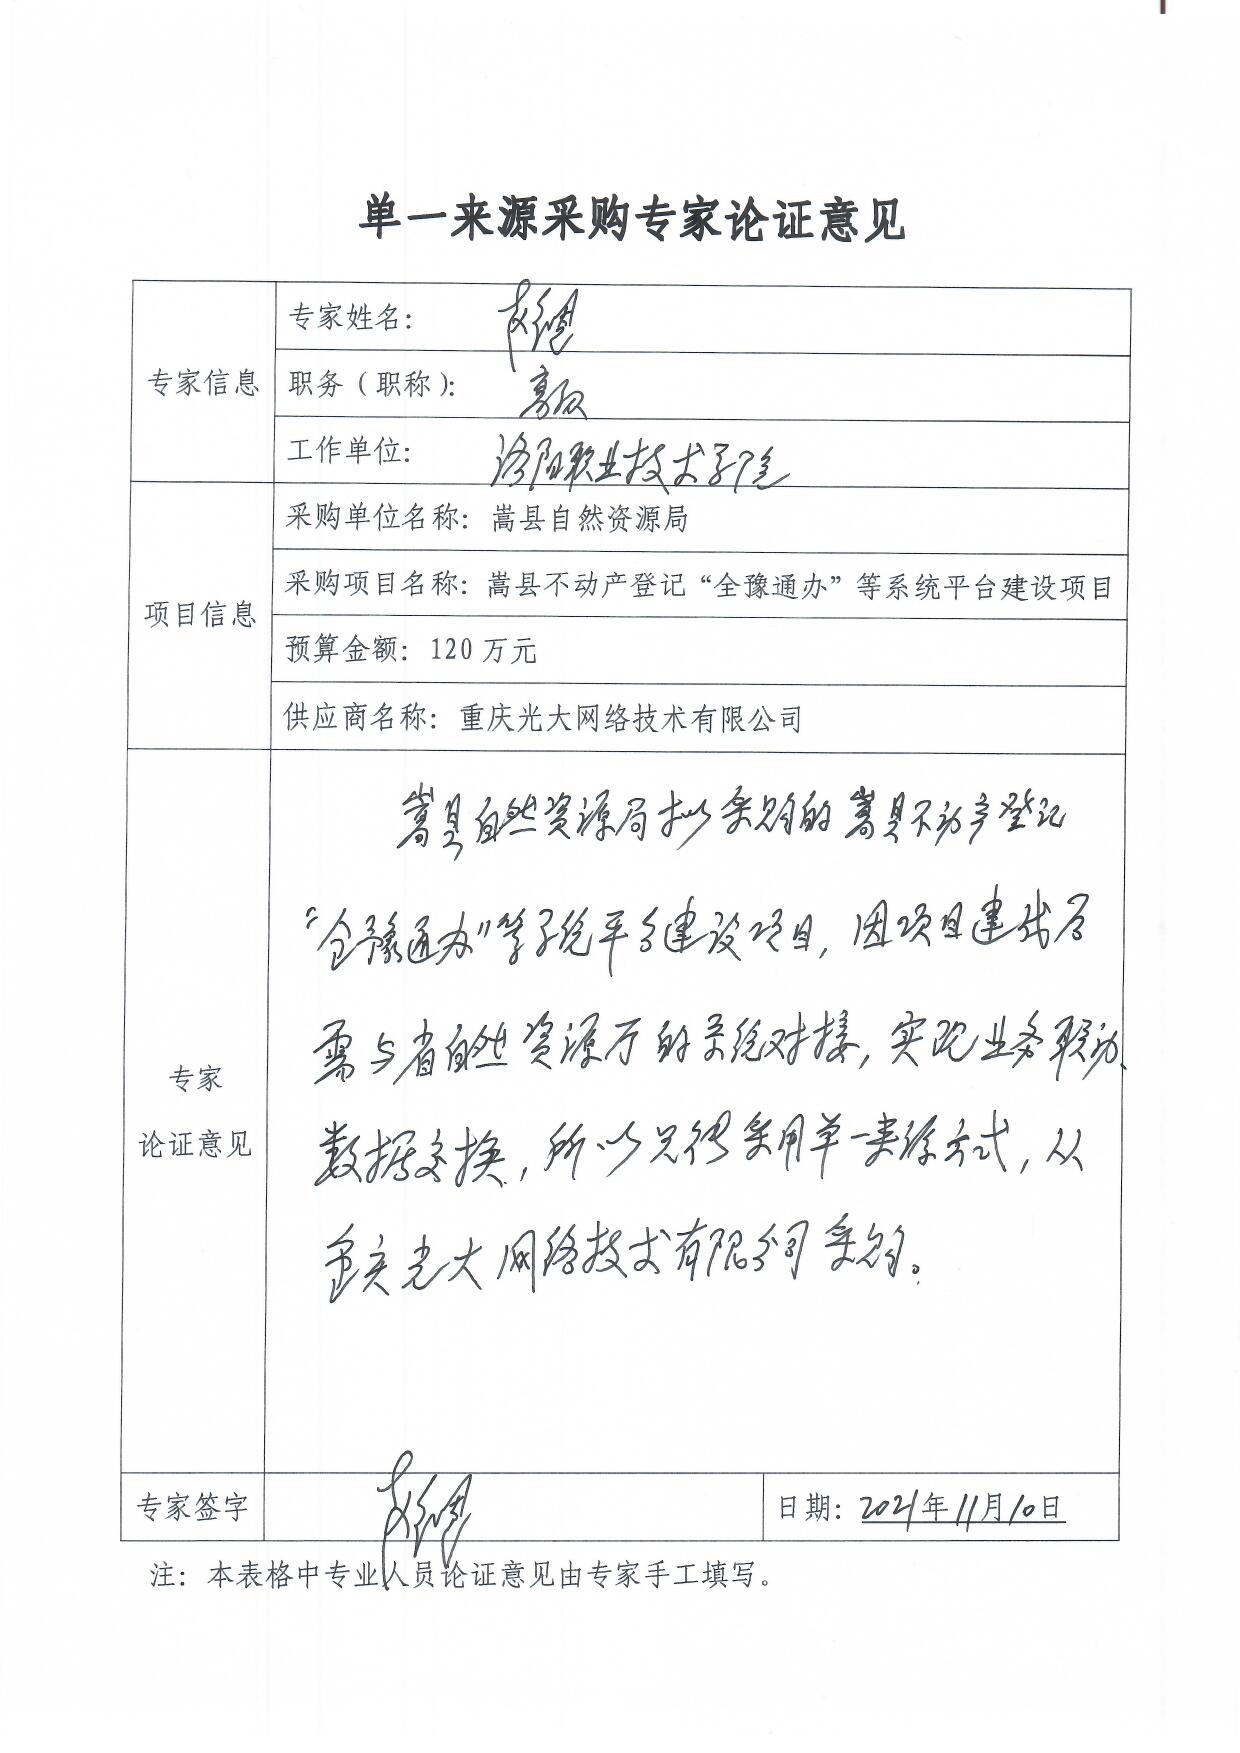 单一来源采购专家论证意见
专家信息
专家姓名：
职务（职称）： 高级
工作单位： 洛阳职业技术学院
项目信息
采购单位名称：嵩县自然资源局
采购项目名称：嵩县不动产登记“全豫通办”等系统平台建设项目
预算金额：120万元
供应商名称：重庆光大网络技术有限公司
专家
论证意见
嵩县自然资源局拟采购的嵩县不动产登记
“全豫通办”等系统平台建设项目，因项目建成后
需与省自然资源厅的系统对接，实现业务联动、
数据交换，所以只得采用单一来源方式，从
重庆光大网络技术有限公司采购。
专家签字
日期：2021年11月10日
注：本表格中专业人员论证意见由专家手工填写。